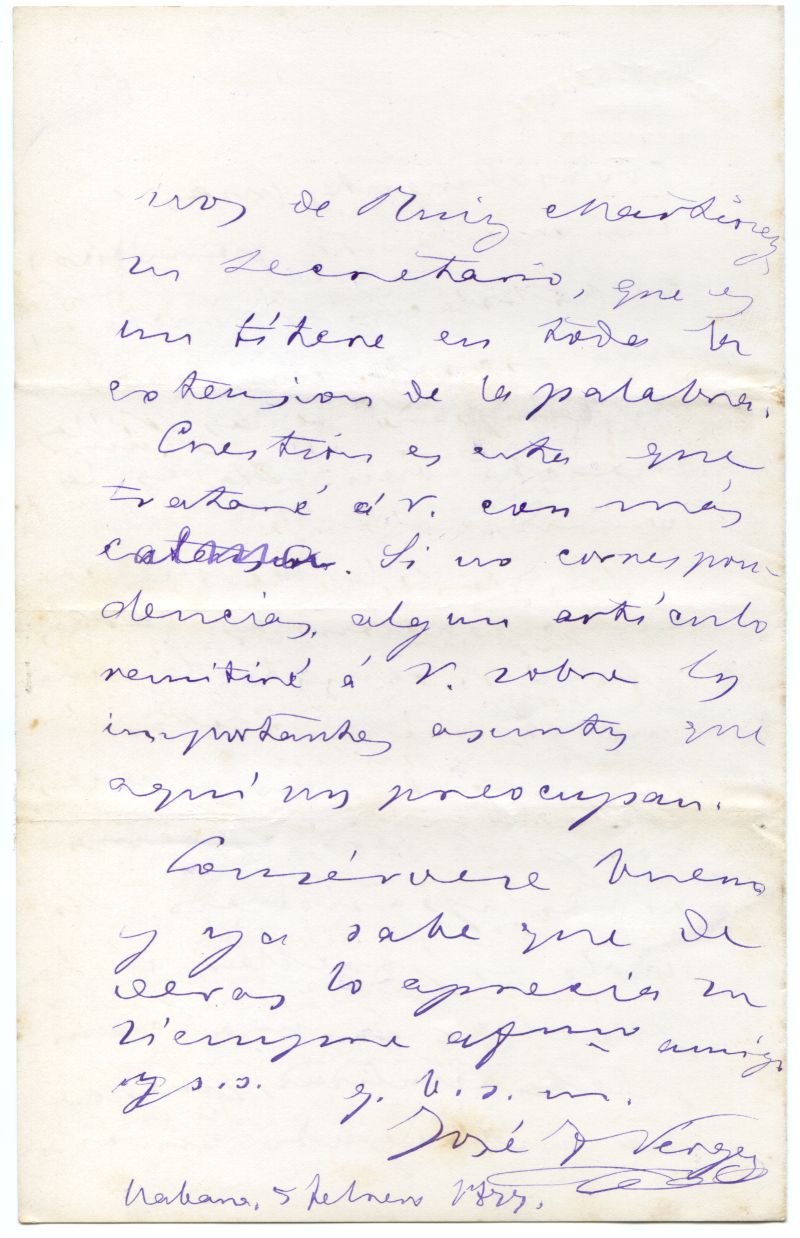 nos de Ruiz Martinez,
su secretario, que es
un títere en toda la
extension de la palabra.
Cuestión es esta que
trataré á V. con más
calma. Si no correspon-
dencias, algun artículo
remitiré á V. sobre los
importantes asuntos que
aquí nos preocupan.
Consérvese bueno
y ya sabe que de
veras lo aprecia su
siempre afmo amigo
y s.s. q. b. s. m.
José F Vérgez
Habana, 5 febrero